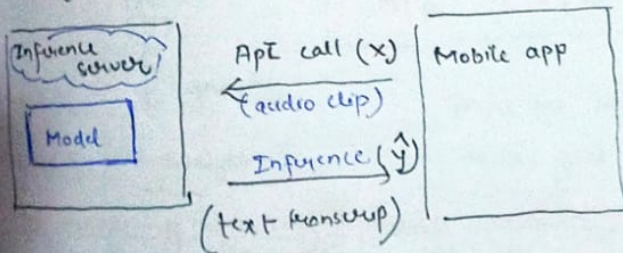 Inference
server
Model
API call (x)
(audio clip)
Inference (ŷ)
(text transcrip)
Mobile app